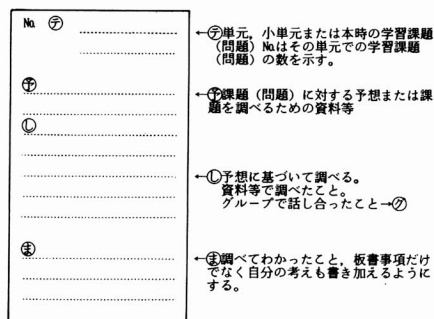 No. ㋢
←㋢単元，小単元または本時の学習課題
（問題）No.はその単元での学習課題
（問題）の数を示す。
予
←予課題（問題）に対する予想または課
題を調べるための資料等
し
←し予想に基づいて調べる。
資料等で調べたこと。
グループで話し合ったこと→㋗
ま
←ま調べてわかったこと，板書事項だけ
でなく自分の考えも書き加えるように
する。